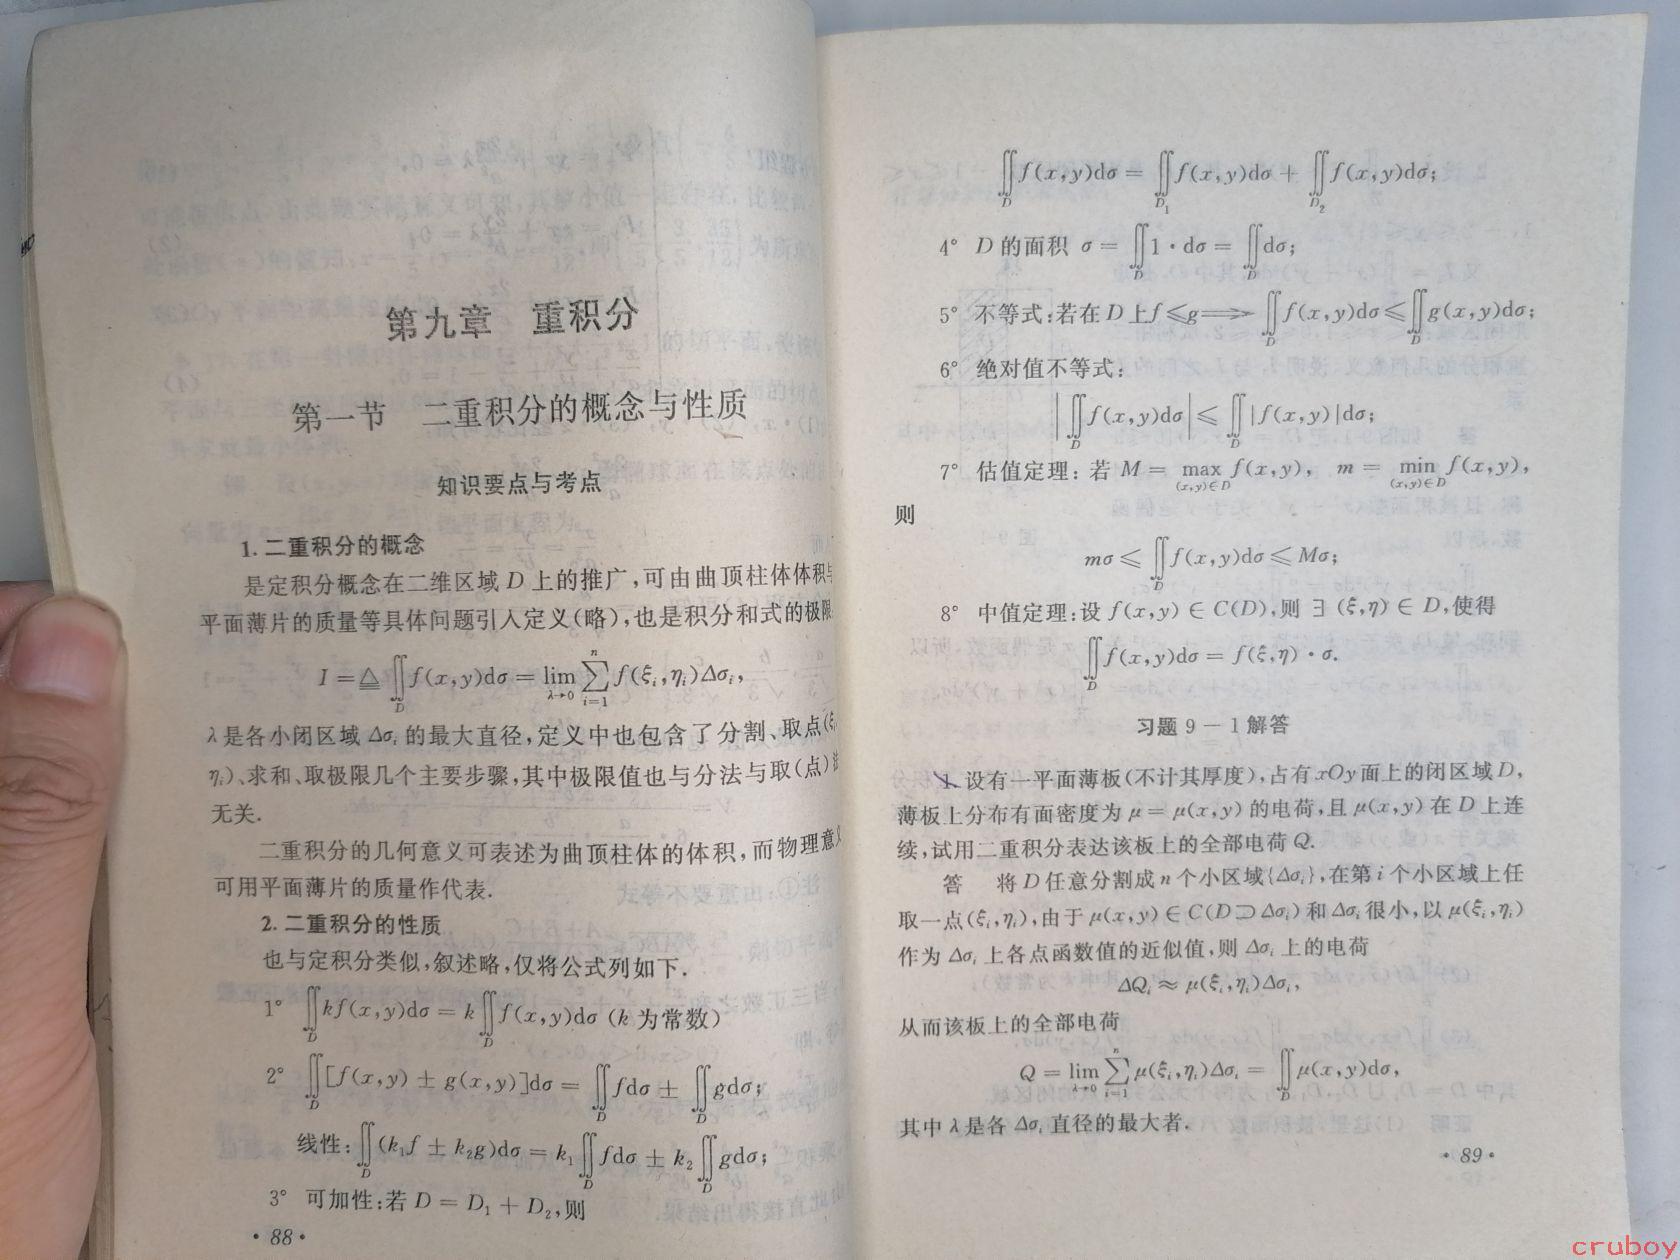 第九章 重积分
第一节 二重积分的概念与性质
知识要点与考点
1. 二重积分的概念
是定积分概念在二维区域 D 上的推广,可由曲顶柱体体积与
平面薄片的质量等具体问题引入定义(略),也是积分和式的极限
I =≜ ∬_D f(x,y)dσ = lim_{λ→0} ∑_{i=1}^{n} f(ξ_i,η_i)Δσ_i,
λ 是各小闭区域 Δσ_i 的最大直径,定义中也包含了分割、取点(ξ_i
η_i)、求和、取极限几个主要步骤,其中极限值也与分法与取(点)法
无关.
二重积分的几何意义可表述为曲顶柱体的体积,而物理意义
可用平面薄片的质量作代表.
2. 二重积分的性质
也与定积分类似,叙述略,仅将公式列如下.
1° ∬_D kf(x,y)dσ = k∬_D f(x,y)dσ (k 为常数)
2° ∬_D [f(x,y) ± g(x,y)]dσ = ∬_D fdσ ± ∬_D gdσ;
线性: ∬_D (k_1f ± k_2g)dσ = k_1∬_D fdσ ± k_2∬_D gdσ;
3° 可加性:若 D = D_1 + D_2,则
· 88 ·
∬_D f(x,y)dσ = ∬_{D_1} f(x,y)dσ + ∬_{D_2} f(x,y)dσ;
4° D 的面积 σ = ∬_D 1 · dσ = ∬_D dσ;
5° 不等式:若在 D 上 f ≤ g ⟹ ∬_D f(x,y)dσ ≤ ∬_D g(x,y)dσ;
6° 绝对值不等式:
|∬_D f(x,y)dσ| ≤ ∬_D |f(x,y)|dσ;
7° 估值定理: 若 M = max_{(x,y)∈D} f(x,y), m = min_{(x,y)∈D} f(x,y),
则
mσ ≤ ∬_D f(x,y)dσ ≤ Mσ;
8° 中值定理:设 f(x,y) ∈ C(D),则 ∃ (ξ,η) ∈ D,使得
∬_D f(x,y)dσ = f(ξ,η) · σ.
习题 9 - 1 解答
1. 设有一平面薄板(不计其厚度),占有 xOy 面上的闭区域 D,
薄板上分布有面密度为 μ = μ(x,y) 的电荷,且 μ(x,y) 在 D 上连
续,试用二重积分表达该板上的全部电荷 Q.
答 将 D 任意分割成 n 个小区域{Δσ_i},在第 i 个小区域上任
取一点(ξ_i,η_i),由于 μ(x,y) ∈ C(D ⊃ Δσ_i) 和 Δσ_i 很小,以 μ(ξ_i,η_i)
作为 Δσ_i 上各点函数值的近似值,则 Δσ_i 上的电荷
ΔQ_i ≈ μ(ξ_i,η_i)Δσ_i,
从而该板上的全部电荷
Q = lim_{λ→0} ∑_{i=1}^{n} μ(ξ_i,η_i)Δσ_i = ∬_D μ(x,y)dσ,
其中 λ 是各 Δσ_i 直径的最大者.
· 89 ·
cruboy